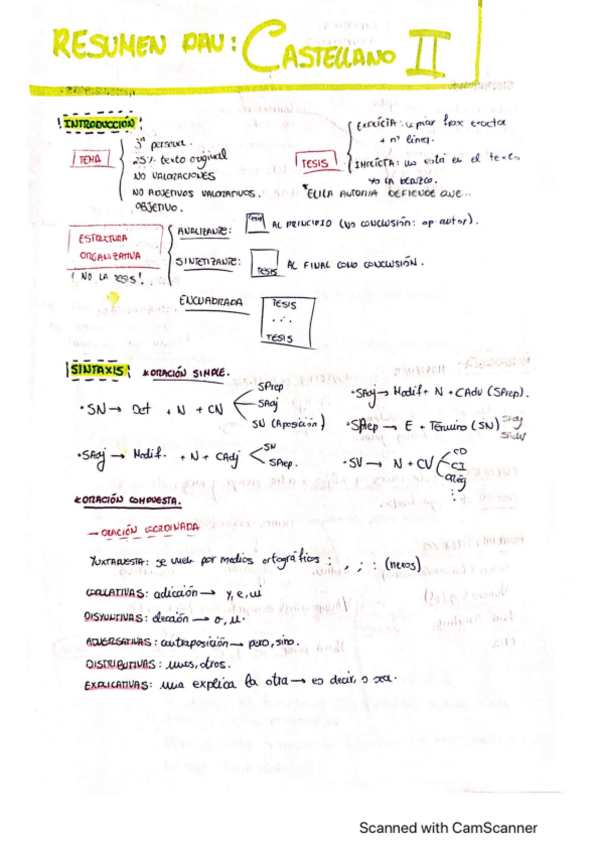 RESUMEN PAU: CASTELLANO II
INTRODUCCIÓN
TEMA
3ª persona.
25% texto original
NO VALORACIONES
NO ADJETIVOS VALORATIVOS.
OBJETIVO.
TESIS
EXPLÍCITA: copiar frase exacta
+ nº línea.
IMPLÍCITA: no está en el texto
yo la deduzco.
*EL/LA AUTOR/A DEFIENDE QUE...
ESTRUCTURA
ORGANIZATIVA
¡NO LA TESIS!
ANALIZANTE: TESIS AL PRINCIPIO (NO CONCLUSIÓN: op autor).
SINTETIZANTE: TESIS AL FINAL COMO CONCLUSIÓN.
ENCUADRADA
TESIS
...
TESIS
SINTAXIS
*ORACIÓN SIMPLE.
·SN → Det + N + CN
SPrep
SAdj
SN (Aposición)
·SAdj → Modif. + N + CAdj
SN
SPrep.
·SAdj → Modif + N + CAdv (SPrep).
·SPrep → E + Término (SN)
SAdj
SAdv
·SV → N + CV
CD
CI
CReg
⋮
*ORACIÓN COMPUESTA.
→ ORACIÓN COORDINADA
YUXTAPUESTA: se unen por medios ortográficos : , ; : (nexos)
COPULATIVAS: adición → y, e, ni
DISYUNTIVAS: elección → o, u.
ADVERSATIVAS: contraposición → pero, sino.
DISTRIBUTIVAS: unos, otros.
EXPLICATIVAS: una explica la otra → es decir, o sea.
Scanned with CamScanner